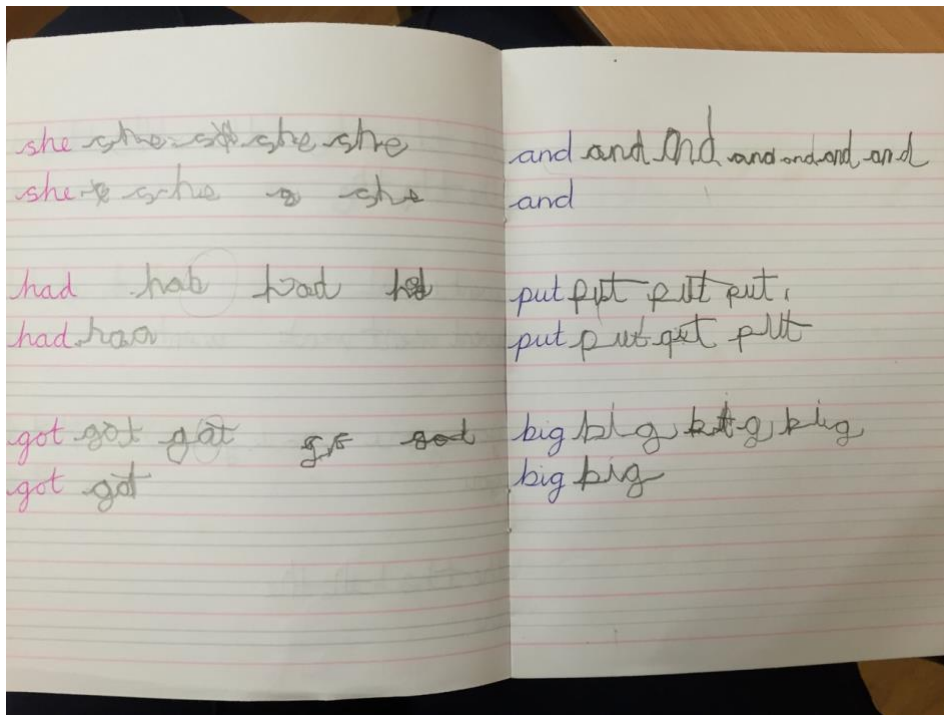 she she she she
she she she
had hab had
had
got got got
got got
and and and and and and and
and
put put put put
put put put put
big big big
big big